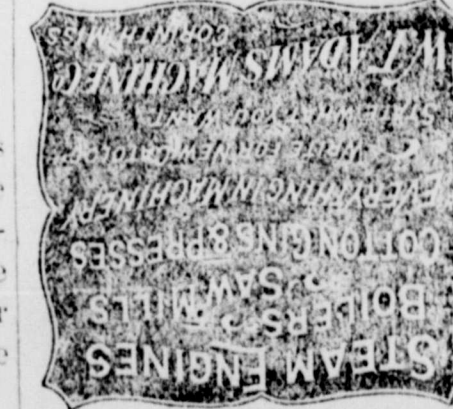 STEAM ENGINES
BOILERS & SAW MILLS
COTTON GINS & PRESSES
EVERYTHING IN MACHINERY
WRITE FOR NEW CATALOG
STATE WHAT YOU WANT
W.T. ADAMS MACHINE CO
CORINTH, MISS